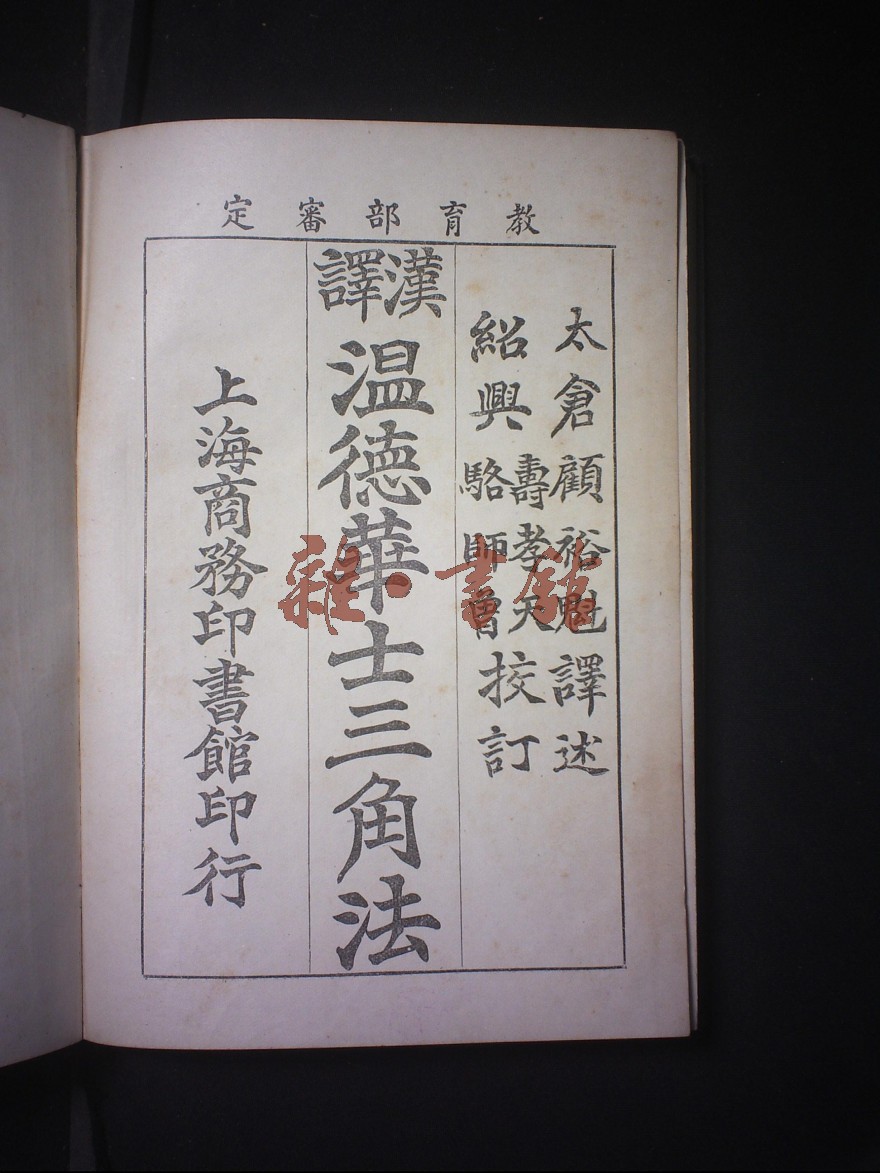 教育部審定
太倉顧裕魁譯述
紹興壽孝天駱師曾挍訂
漢譯温德華士三角法
上海商務印書館印行
雜·書館